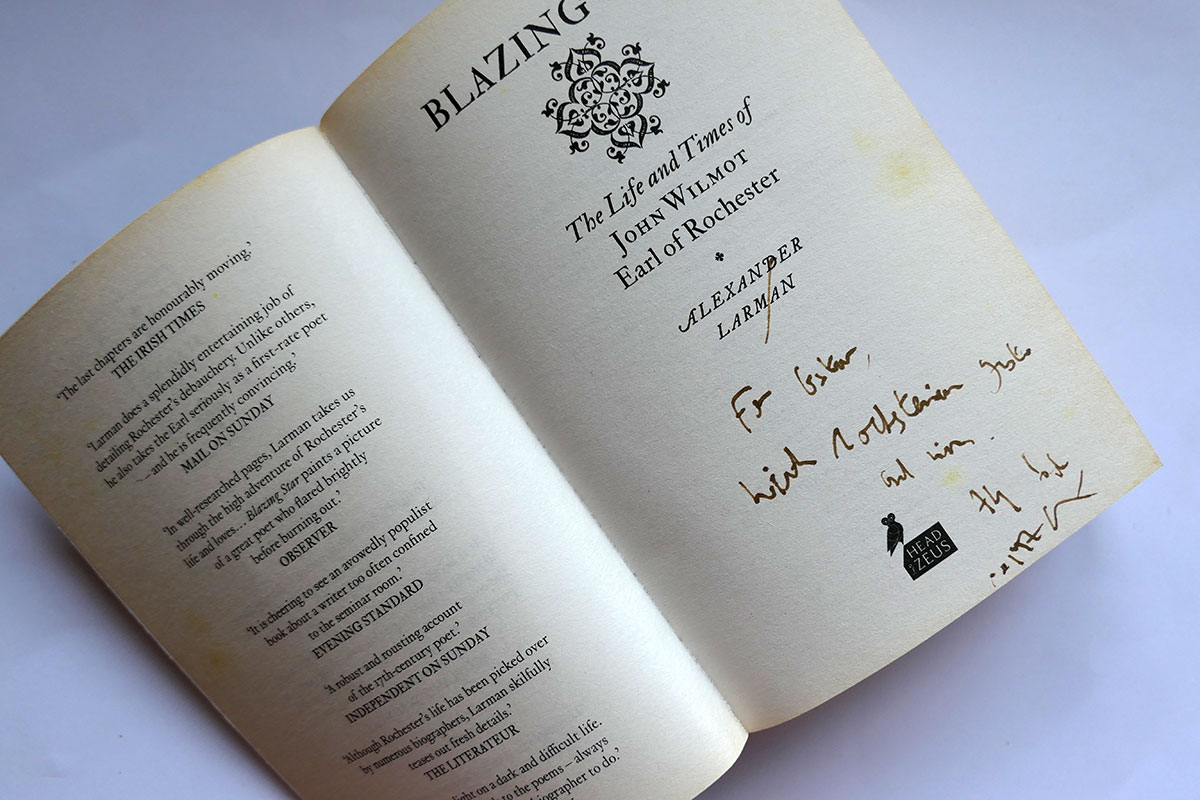 'The last chapters are honourably moving.'
THE IRISH TIMES
'Larman does a splendidly entertaining job of
detailing Rochester's debauchery. Unlike others,
he also takes the Earl seriously as a first-rate poet
– and he is frequently convincing.'
MAIL ON SUNDAY
'In well-researched pages, Larman takes us
through the high adventure of Rochester's
life and loves... Blazing Star paints a picture
of a great poet who flared brightly
before burning out.'
OBSERVER
'It is cheering to see an avowedly populist
book about a writer too often confined
to the seminar room.'
EVENING STANDARD
'A robust and rousting account
of the 17th-century poet.'
INDEPENDENT ON SUNDAY
'Although Rochester's life has been picked over
by numerous biographers, Larman skilfully
teases out fresh details.'
THE LITERATEUR
light on a dark and difficult life.
to the poems – always
biographer to do.'
BLAZING
The Life and Times of
JOHN WILMOT
Earl of Rochester
ALEXANDER
LARMAN
For
with
and
HEAD
of ZEUS